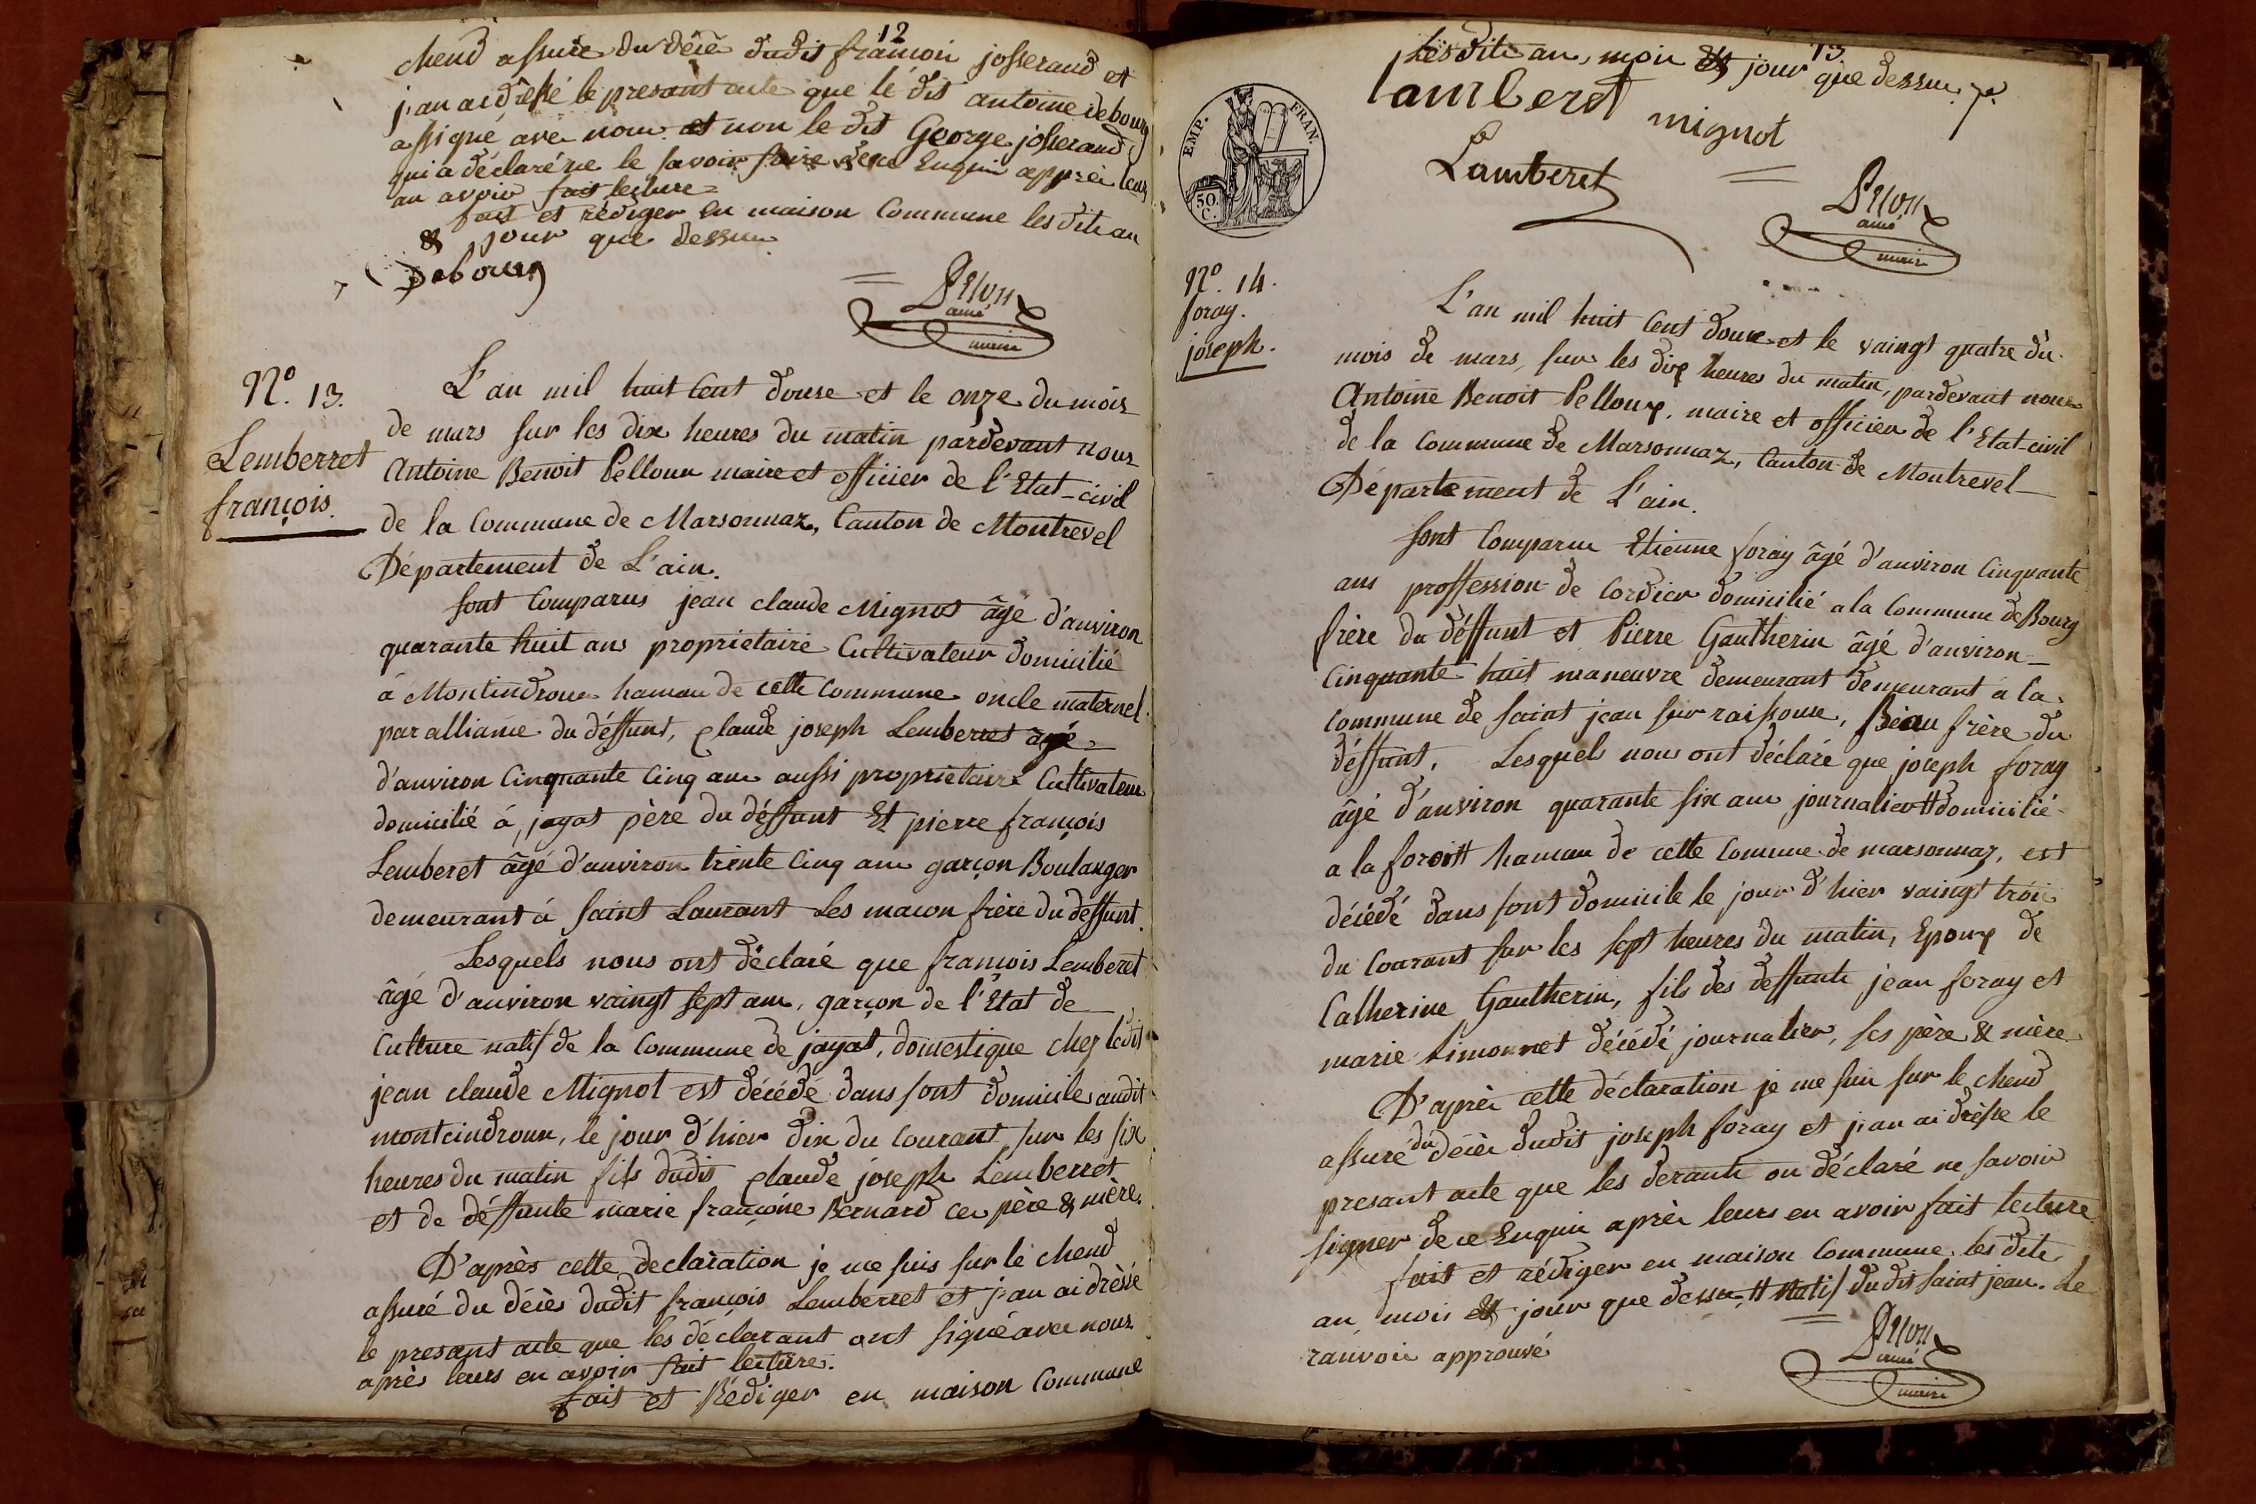 12
chend assuré du décè dudit françoi josserand et
j'an ai drèssé le presant acte que le dit antoine debourg
a signé avec nous et non le dit George josserand
qui a déclaré ne le savoir faire de ce Enquis apprèi leurs
an avoir fait lecture
fait et rédiger en maison Commune les dits an
& jour que dessus
Debourg
ainé
maire
N.º 13.
Lemberret
françois.
L'an mil huit Cent douse et le onze du mois
de mars sur les dix heures du matin pardevant nous
Antoine Benoit Pelloux maire et officier de l'Etat-civil
de la Commune de Marsonnaz, Canton de Montrevel
Département de L'ain.
sont Comparus jean claude Mignot âgé d'anviron
quarante huit ans proprietaire Cultivateur domicilié
á Montindroux hamau de cette Commune oncle maternel
par alliance du déffunt, claude joseph Lemberret âgé
d'anviron Cinquante Cinq ans aussi proprietaire Cultivateur
domicilié á jayat père du déffunt Et pierre françois
Lemberet âgé d'anviron trente Cinq ans garçon Boulanger
demeurant á saint Laurant Les macon frère du déffunt.
Lesquels nous ont déclaré que françois Lemberet
âgé d'anviron vaingt sept ans, garçon de l'Etat de
Culture natif de la Commune de jayat, domestique chez ledit
jean claude Mignot est décédé dans sont domicile audit
montcindroux, le jour d'hier dix du Courant sur les six
heures du matin fils dudit claude joseph Lemberret
et de déffunte marie françoise Bernard ces père & mère.
D'après cette declaration je me suis sur le chend
assuré du décès dudit françois Lemberret et j'an ai drèssé
le presant acte que les déclarant ont signé avec nous
après leurs en avoir fait lecture.
fait et Rédiger en maison Commune
13
Les dits an, mois & jour que dessus
Lamberet
mignot
Lamberet
ainé
maire
EMP. FRAN.
50 C.
N.º 14.
foray.
joseph.
L'an mil huit Cent douze et le vaingt quatre du
mois de mars, sur les dix heures du matin, pardevant nous
Antoine Benoit Pelloux, maire et officier de l'Etat-civil
de la Commune de Marsonnaz, Canton de Montrevel
Département de L'ain.
sont Comparu Etienne foray âgé d'anviron Cinquante
ans proffession de Cordier domicilié a la Commune de Bourg
frère du déffunt et Pierre Gautherin âgé d'anviron
Cinquante huit maneuvre demeurant demeurant a la
Commune de saint jean sur raissouse, Béau frère du
déffunt, Lesquel nous ont déclaré que joseph foray
âgé d'anviron quarante six ans journalier # domicilié
a la foroitt hamau de cette Commune de marsonnaz, est
décédé dans sont domicile le jour d'hier vaingt trois
du Courant sur les sept heures du matin, Epoux de
Catherine Gautherin, fils des deffunts jean foray et
marie Limonnet décédé journalier, ses père & mère
D'aprèi cette déclaration je me suis sur le chend
assuré du décèi dudit joseph foray et j'an ai drèsse le
presant acte que les derants on déclaré ne savoir
signer de ce Enquis aprèi leurs en avoir fait lecture
fait et rédiger en maison Commune les dits
an, mois & jour que dessus, # Natif dudit saint jean. Le
ranvoie approuvé
ainé
maire